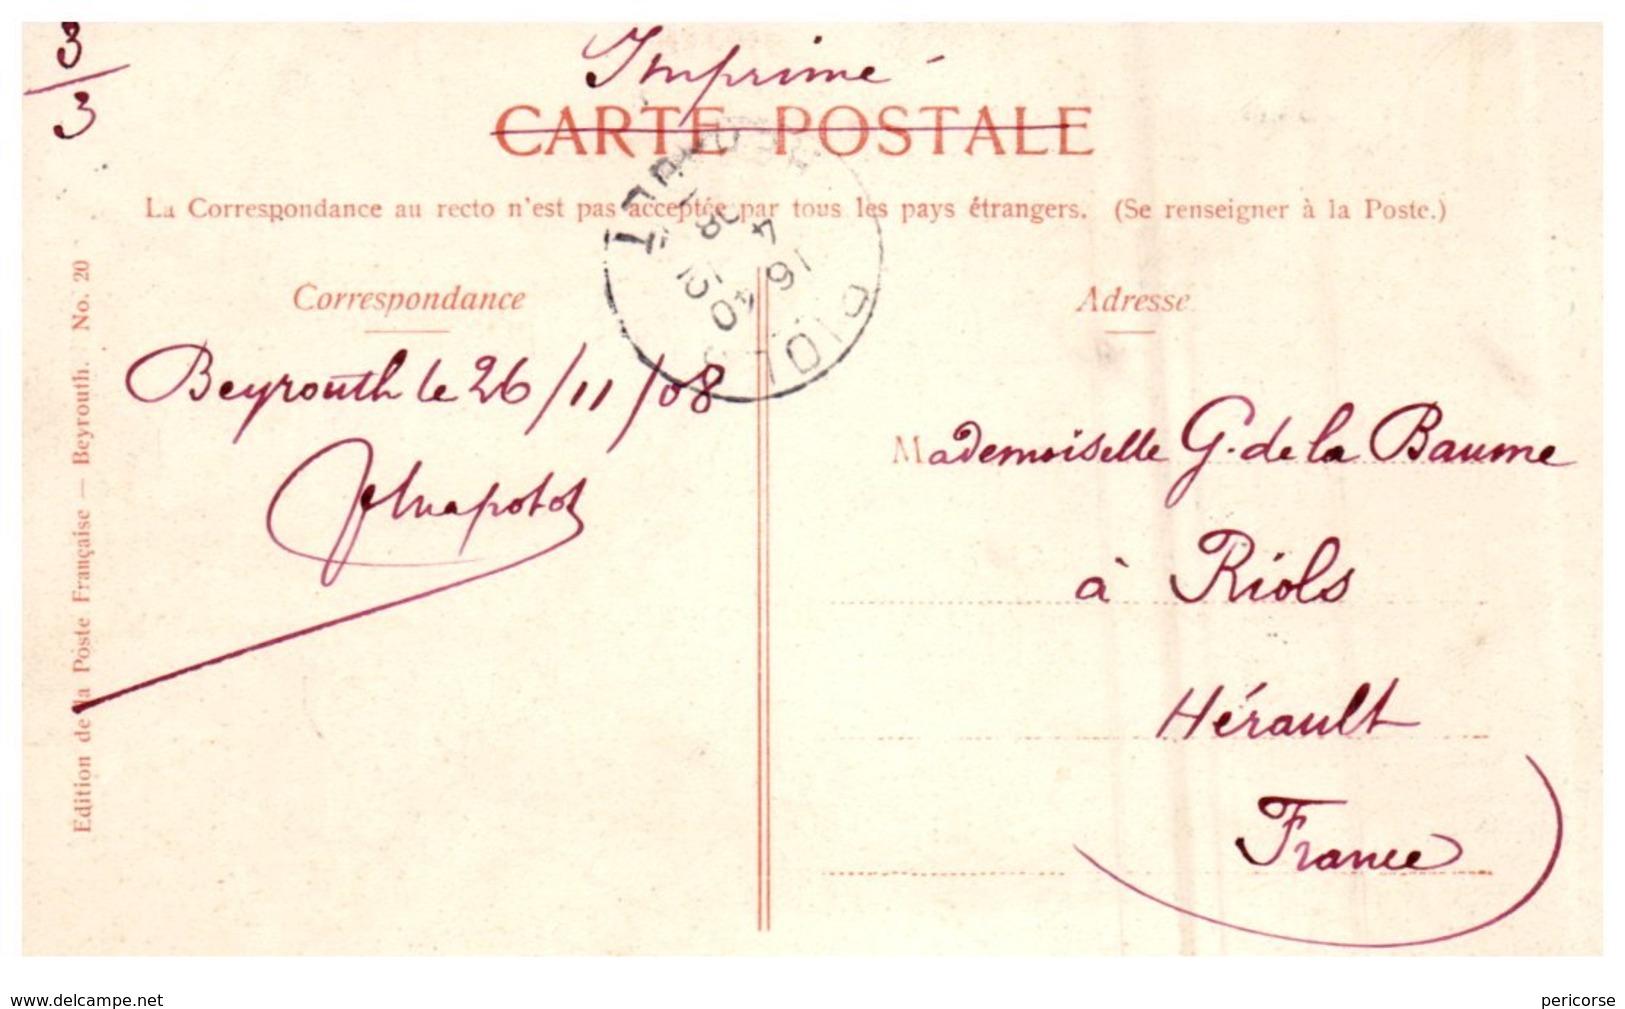 3
3
Imprimé
CARTE POSTALE
La Correspondance au recto n'est pas acceptée par tous les pays étrangers. (Se renseigner à la Poste.)
Edition de la Poste Française — Beyrouth. No. 20
Correspondance
Beyrouth le 26/11/08
RIOLS
16 40
4 12
Adresse
Mademoiselle G. de la Baume
à Riols
Hérault
France
www.delcampe.net
pericorse